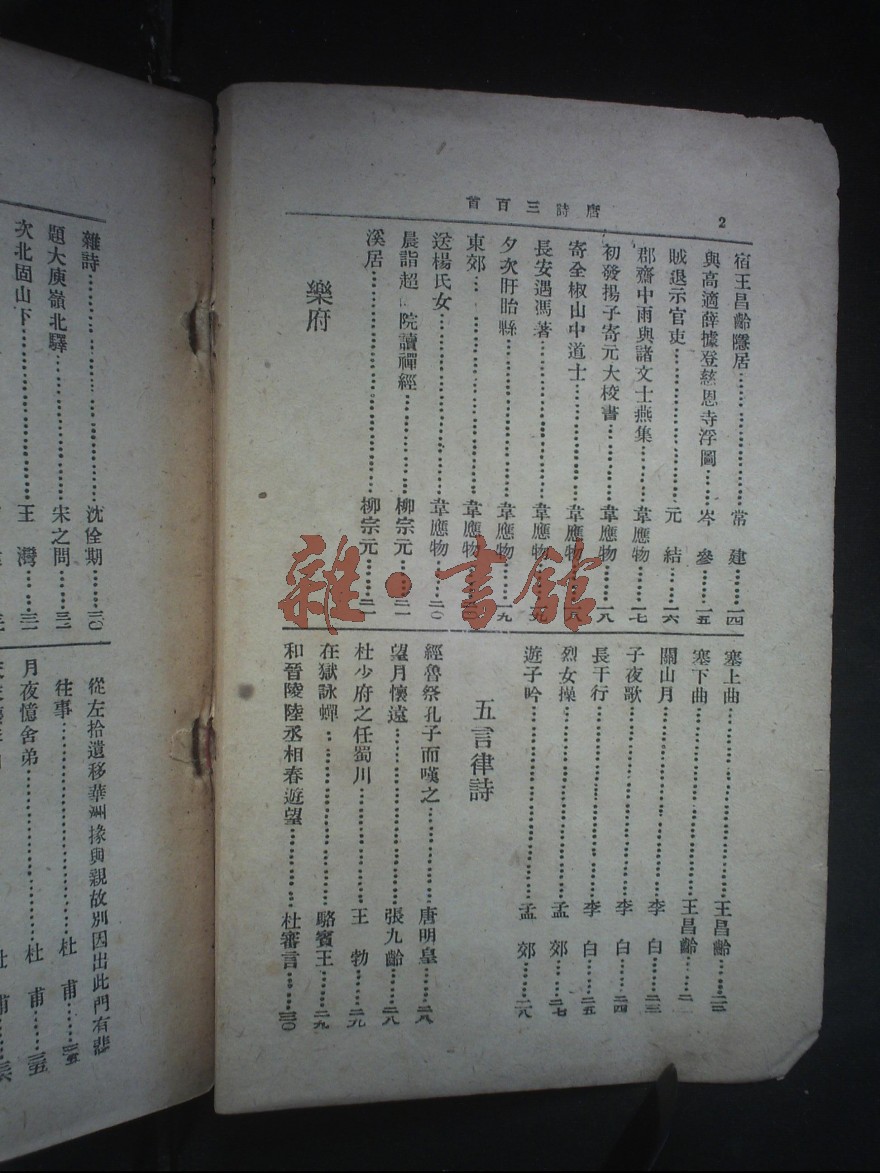 唐詩三百首
2
宿王昌齡隱居……常建……一四
與高適薛據登慈恩寺浮圖……岑參……一五
賊退示官吏……元結……一六
郡齋中雨與諸文士燕集……韋應物……一七
初發揚子寄元大校書……韋應物……一八
寄全椒山中道士……韋應物
長安遇馮著……韋應物
夕次盱眙縣……韋應物……一九
東郊……韋應物
送楊氏女……韋應物……二〇
晨詣超 院讀禪經……柳宗元……二一
溪居……柳宗元……二一
樂府
塞上曲……王昌齡
塞下曲……王昌齡
關山月……李白……二三
子夜歌……李白……二四
長干行……李白……二五
烈女操……孟郊……二七
遊子吟……孟郊……二八
五言律詩
經魯祭孔子而嘆之……唐明皇……二八
望月懷遠……張九齡……二八
杜少府之任蜀川……王勃……二九
在獄詠蟬……駱賓王……二九
和晉陵陸丞相春遊望……杜審言……三〇
雜詩……沈佺期……三〇
題大庾嶺北驛……宋之問……三一
次北固山下……王灣……三一
從左拾遺移華洲掾與親故別因出此門有悲
往事……杜甫……三五
月夜憶舍弟……杜甫……三五
雜·書館